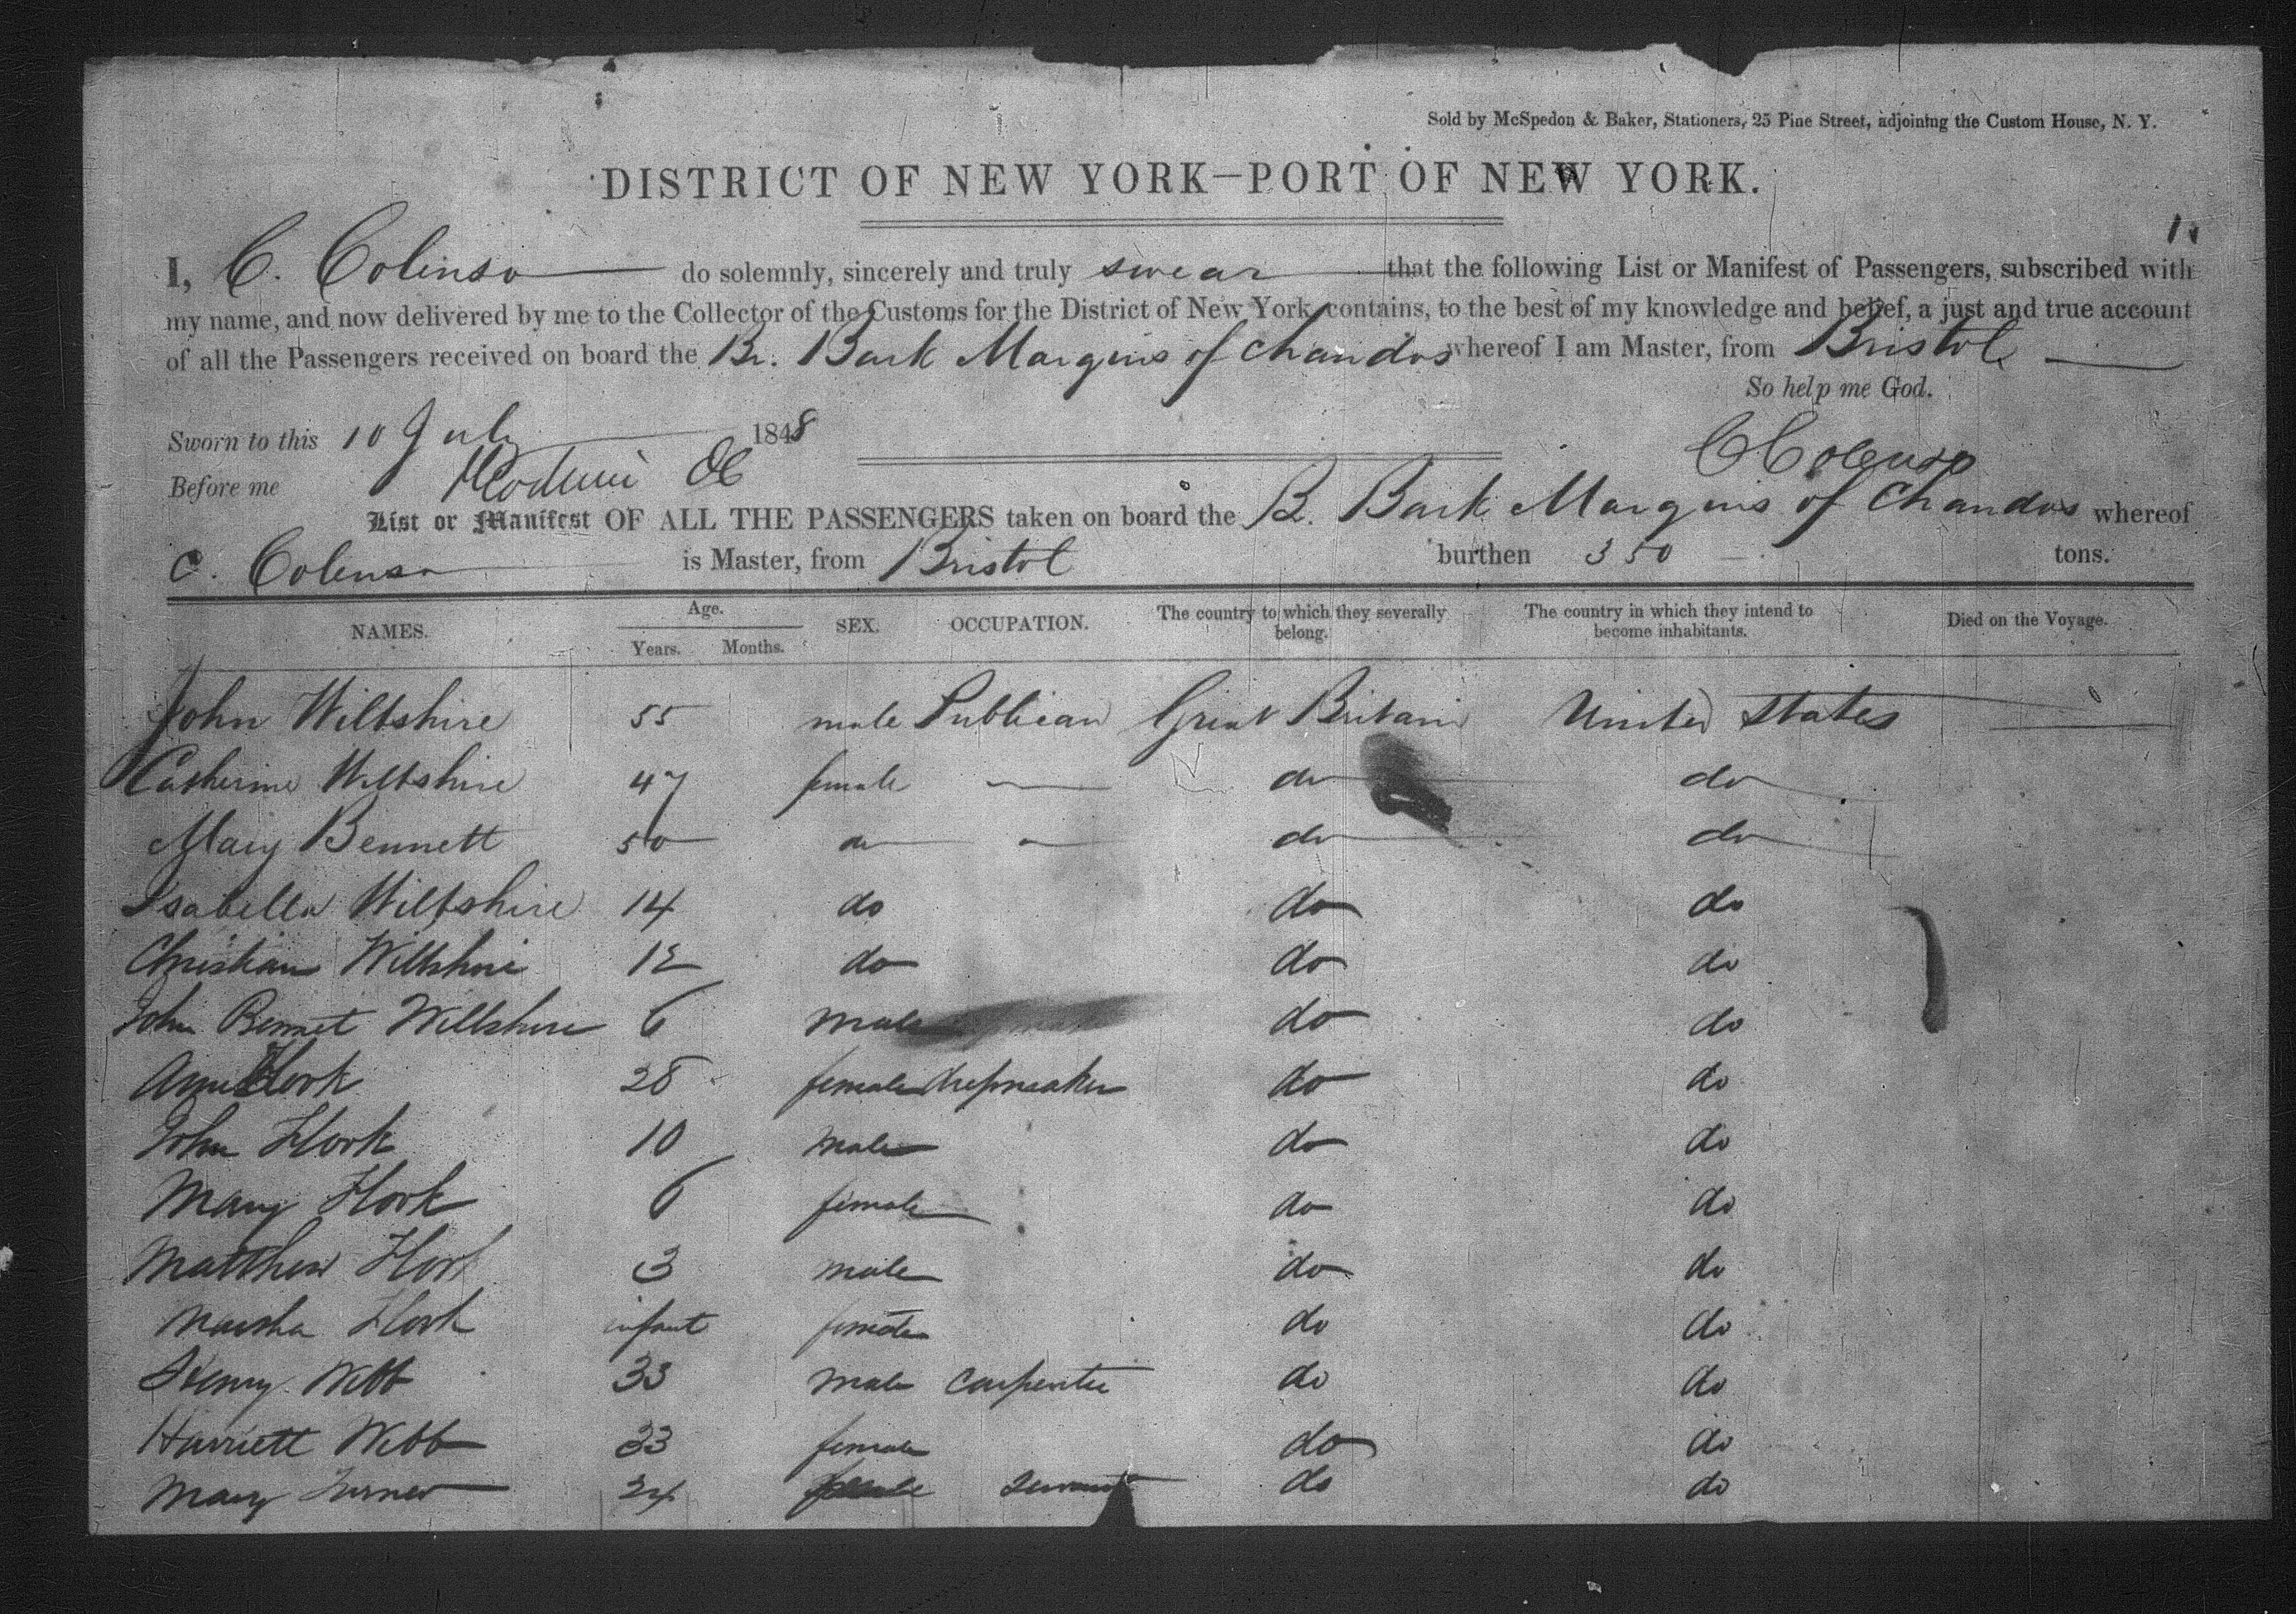 Sold by McSpedon & Baker, Stationers, 25 Pine Street, adjoining the Custom House, N. Y.
DISTRICT OF NEW YORK—PORT OF NEW YORK.
1.
I, C. Colenso do solemnly, sincerely and truly swear that the following List or Manifest of Passengers, subscribed with
my name, and now delivered by me to the Collector of the Customs for the District of New York, contains, to the best of my knowledge and belief, a just and true account
of all the Passengers received on board the Br. Bark Marquis of Chandos whereof I am Master, from Bristol
So help me God.
Sworn to this 10 July 1848
C Colenso
Before me
List or Manifest OF ALL THE PASSENGERS taken on board the B. Bark Marquis of Chandos whereof
C. Colenso is Master, from Bristol burthen 350 tons.
NAMES. Age. Years. Months. SEX. OCCUPATION. The country to which they severally belong. The country in which they intend to become inhabitants. Died on the Voyage.
John Wiltshire 55 male Publican Great Britain United States
Catherine Wiltshire 47 female do do
Mary Bennett 50 do do do
Isabella Wiltshire 14 do do do
Christian Wiltshire 12 do do do
John Bennet Wiltshire 6 male do do
Ann Flook 28 female dressmaker do do
John Flook 10 male do do
Mary Flook 6 female do do
Matthew Flook 3 male do do
Martha Flook infant female do do
Henry Webb 33 male Carpenter do do
Harriett Webb 33 female do do
Mary Turner 24 female Servant do do